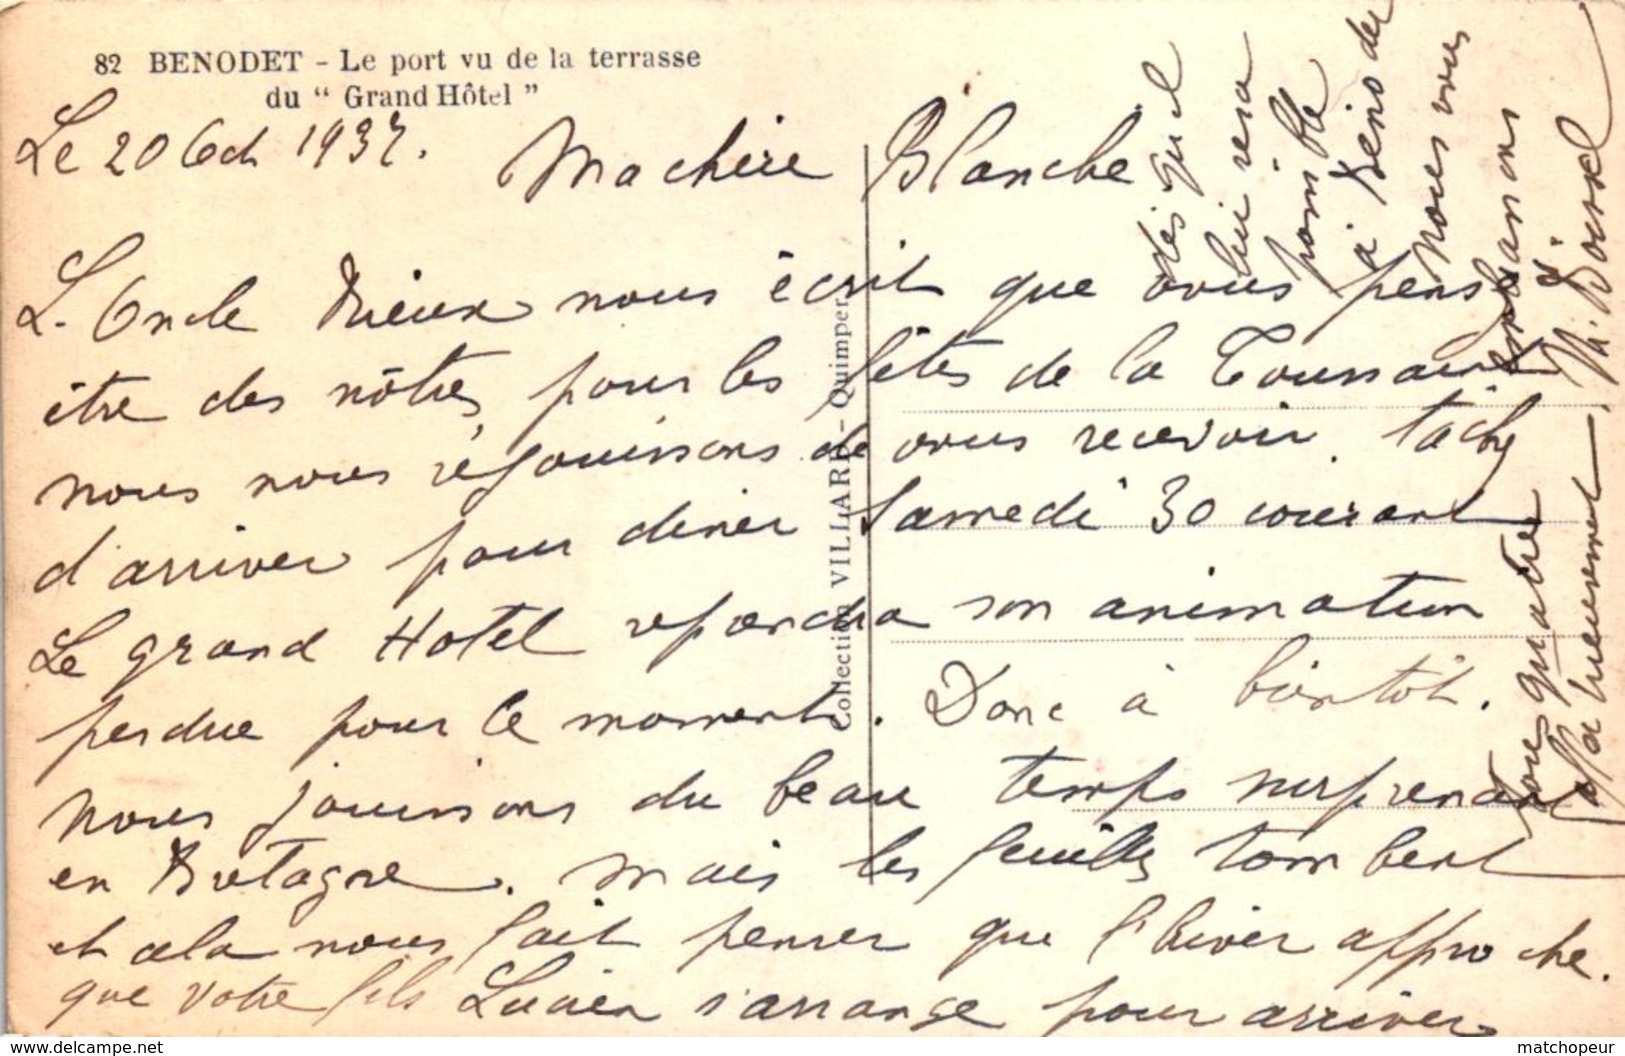 82 BENODET - Le port vu de la terrasse
du " Grand Hôtel "
Le 20 Oct 1937.
Ma chère Blanche
L'Oncle nous écrit que vous pensez
être des nôtres pour les fêtes de la Toussaint
nous nous réjouissons de vous recevoir. tachez
d'arriver pour diner Samedi 30 courant
Le grand Hotel reprendra son animation
perdue pour le moment. Donc à bientôt.
nous jouissons du beau temps surprenant
en Bretagne. mais les feuilles tombent
et cela nous fait penser que l'hiver approche.
que votre fils Lucien s'arrange pour arriver
dès qu'il
lui sera
possible
à Beinodet
Nous vous
embrassons
tous quatre
affectueusement.
Collection VILLARD - Quimper
matchopeur
www.delcampe.net